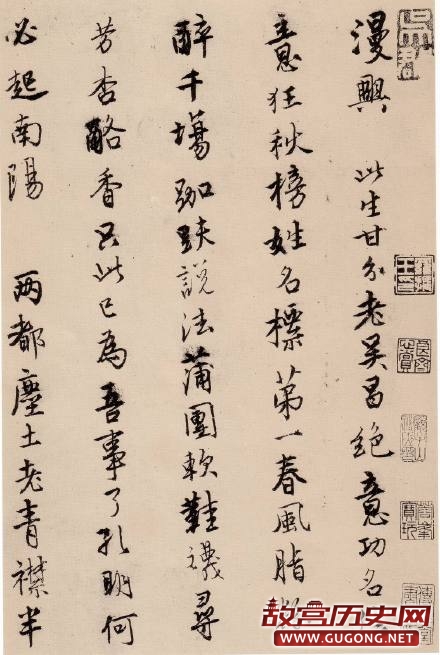 漫興 此生甘分老吳昌絕意功名
意狂秋榜姓名標第一春風脂
醉千場跏趺說法蒲團軟鞋襪尋
芳杏酪香只此已為吾事了孔明何
必起南陽 兩都塵土老青襟半
故宫历史网
WWW.GUGONG.NET